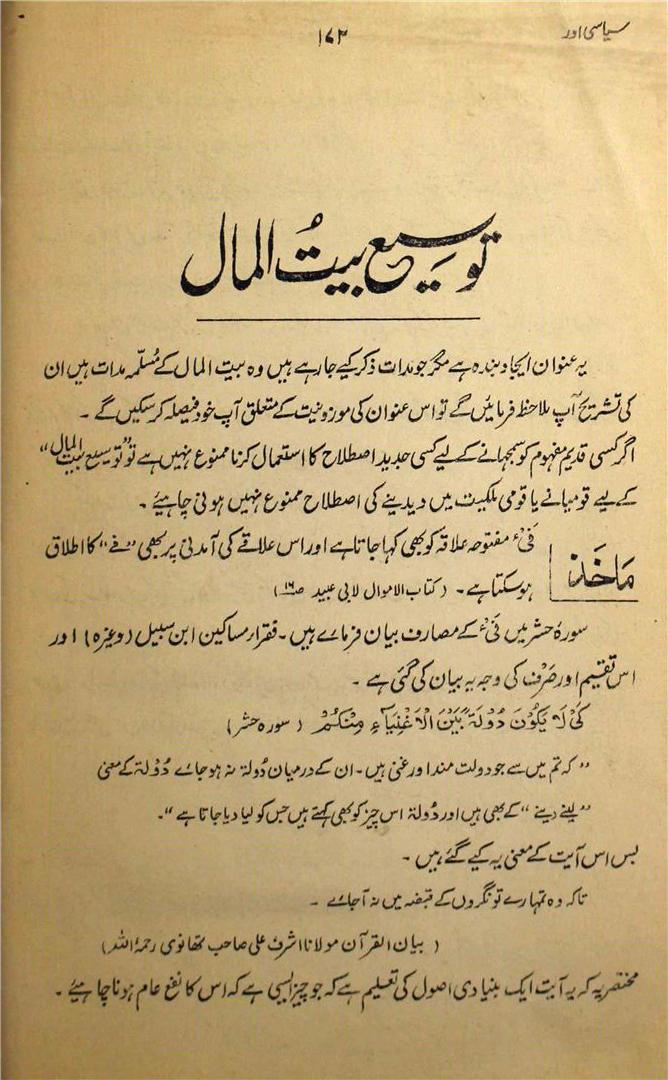 سیاسی اور
۱۷۳
توسیع بیتُ المال
یہ عنوان ایجاد بندہ ہے مگر جو مدات ذکر کیے جا رہے ہیں وہ بیت المال کے مُسلّمہ مدات ہیں ان
کی تشریح آپ ملاحظہ فرمائیں گے تو اس عنوان کی موزونیت کے متعلق آپ خود فیصلہ کرسکیں گے ۔
اگر کسی قدیم مفہوم کو سمجھانے کے لیے کسی جدید اصطلاح کا استعمال کرنا ممنوع نہیں ہے تو ”توسیع بیت المال“
کے لیے قومیانے یا قومی ملکیت میں دیدینے کی اصطلاح ممنوع نہیں ہونی چاہیئے ۔
مَاخَذ
فَیْء مفتوحہ علاقہ کو بھی کہا جاتا ہے اور اس علاقے کی آمدنی پر بھی ”فے“ کا اطلاق
ہوسکتا ہے ۔ (کتاب الاموال لابی عبید ص۱۶)
سورۂ حشر میں فَیْء کے مصارف بیان فرمائے ہیں ۔ فقراء مساکین ابن سبیل (وغیرہ) اور
اس تقسیم اور صَرْف کی وجہ یہ بیان کی گئی ہے ۔
کَیْ لَا یَکُوْنَ دُوْلَۃً بَیْنَ الْاَغْنِیَآءِ مِنْکُمْ (سورہ حشر)
”کہ تم میں سے جو دولت مند اور غنی ہیں ۔ ان کے درمیان دُولۃ نہ ہو جائے دُوْلۃ کے معنی
”لینے دینے“ کے بھی ہیں اور دُولۃ اس چیز کو بھی کہتے ہیں جس کو لیا دیا جاتا ہے“ ۔
بس اس آیت کے معنی یہ کیے گئے ہیں ۔
تاکہ وہ تمہارے تونگروں کے قبضہ میں نہ آجائے ۔
(بیان القرآن مولانا اشرف علی صاحب تھانوی رحمۂ اللہ)
مختصر یہ کہ یہ آیت ایک بنیادی اصول کی تعلیم ہے کہ جو چیز ایسی ہے کہ اس کا نفع عام ہونا چاہیئے ۔